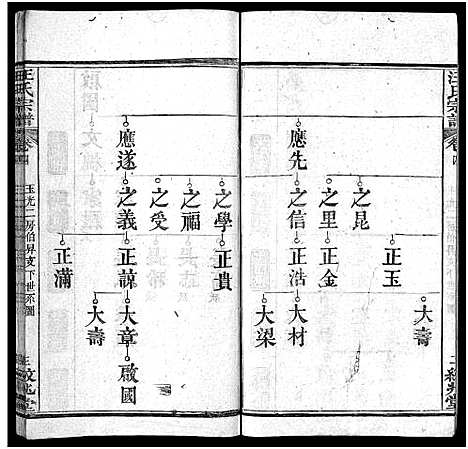 汪氏宗譜
卷四
應先
之昆
之里
之信
正玉
正金
正浩
大壽
大材
大梁
應遂
之學
之福
之受
之義
正貴
正諒
正滿
大章
大壽
啟國
汪氏宗譜
卷四
玉光二房伯昇支下世系圖